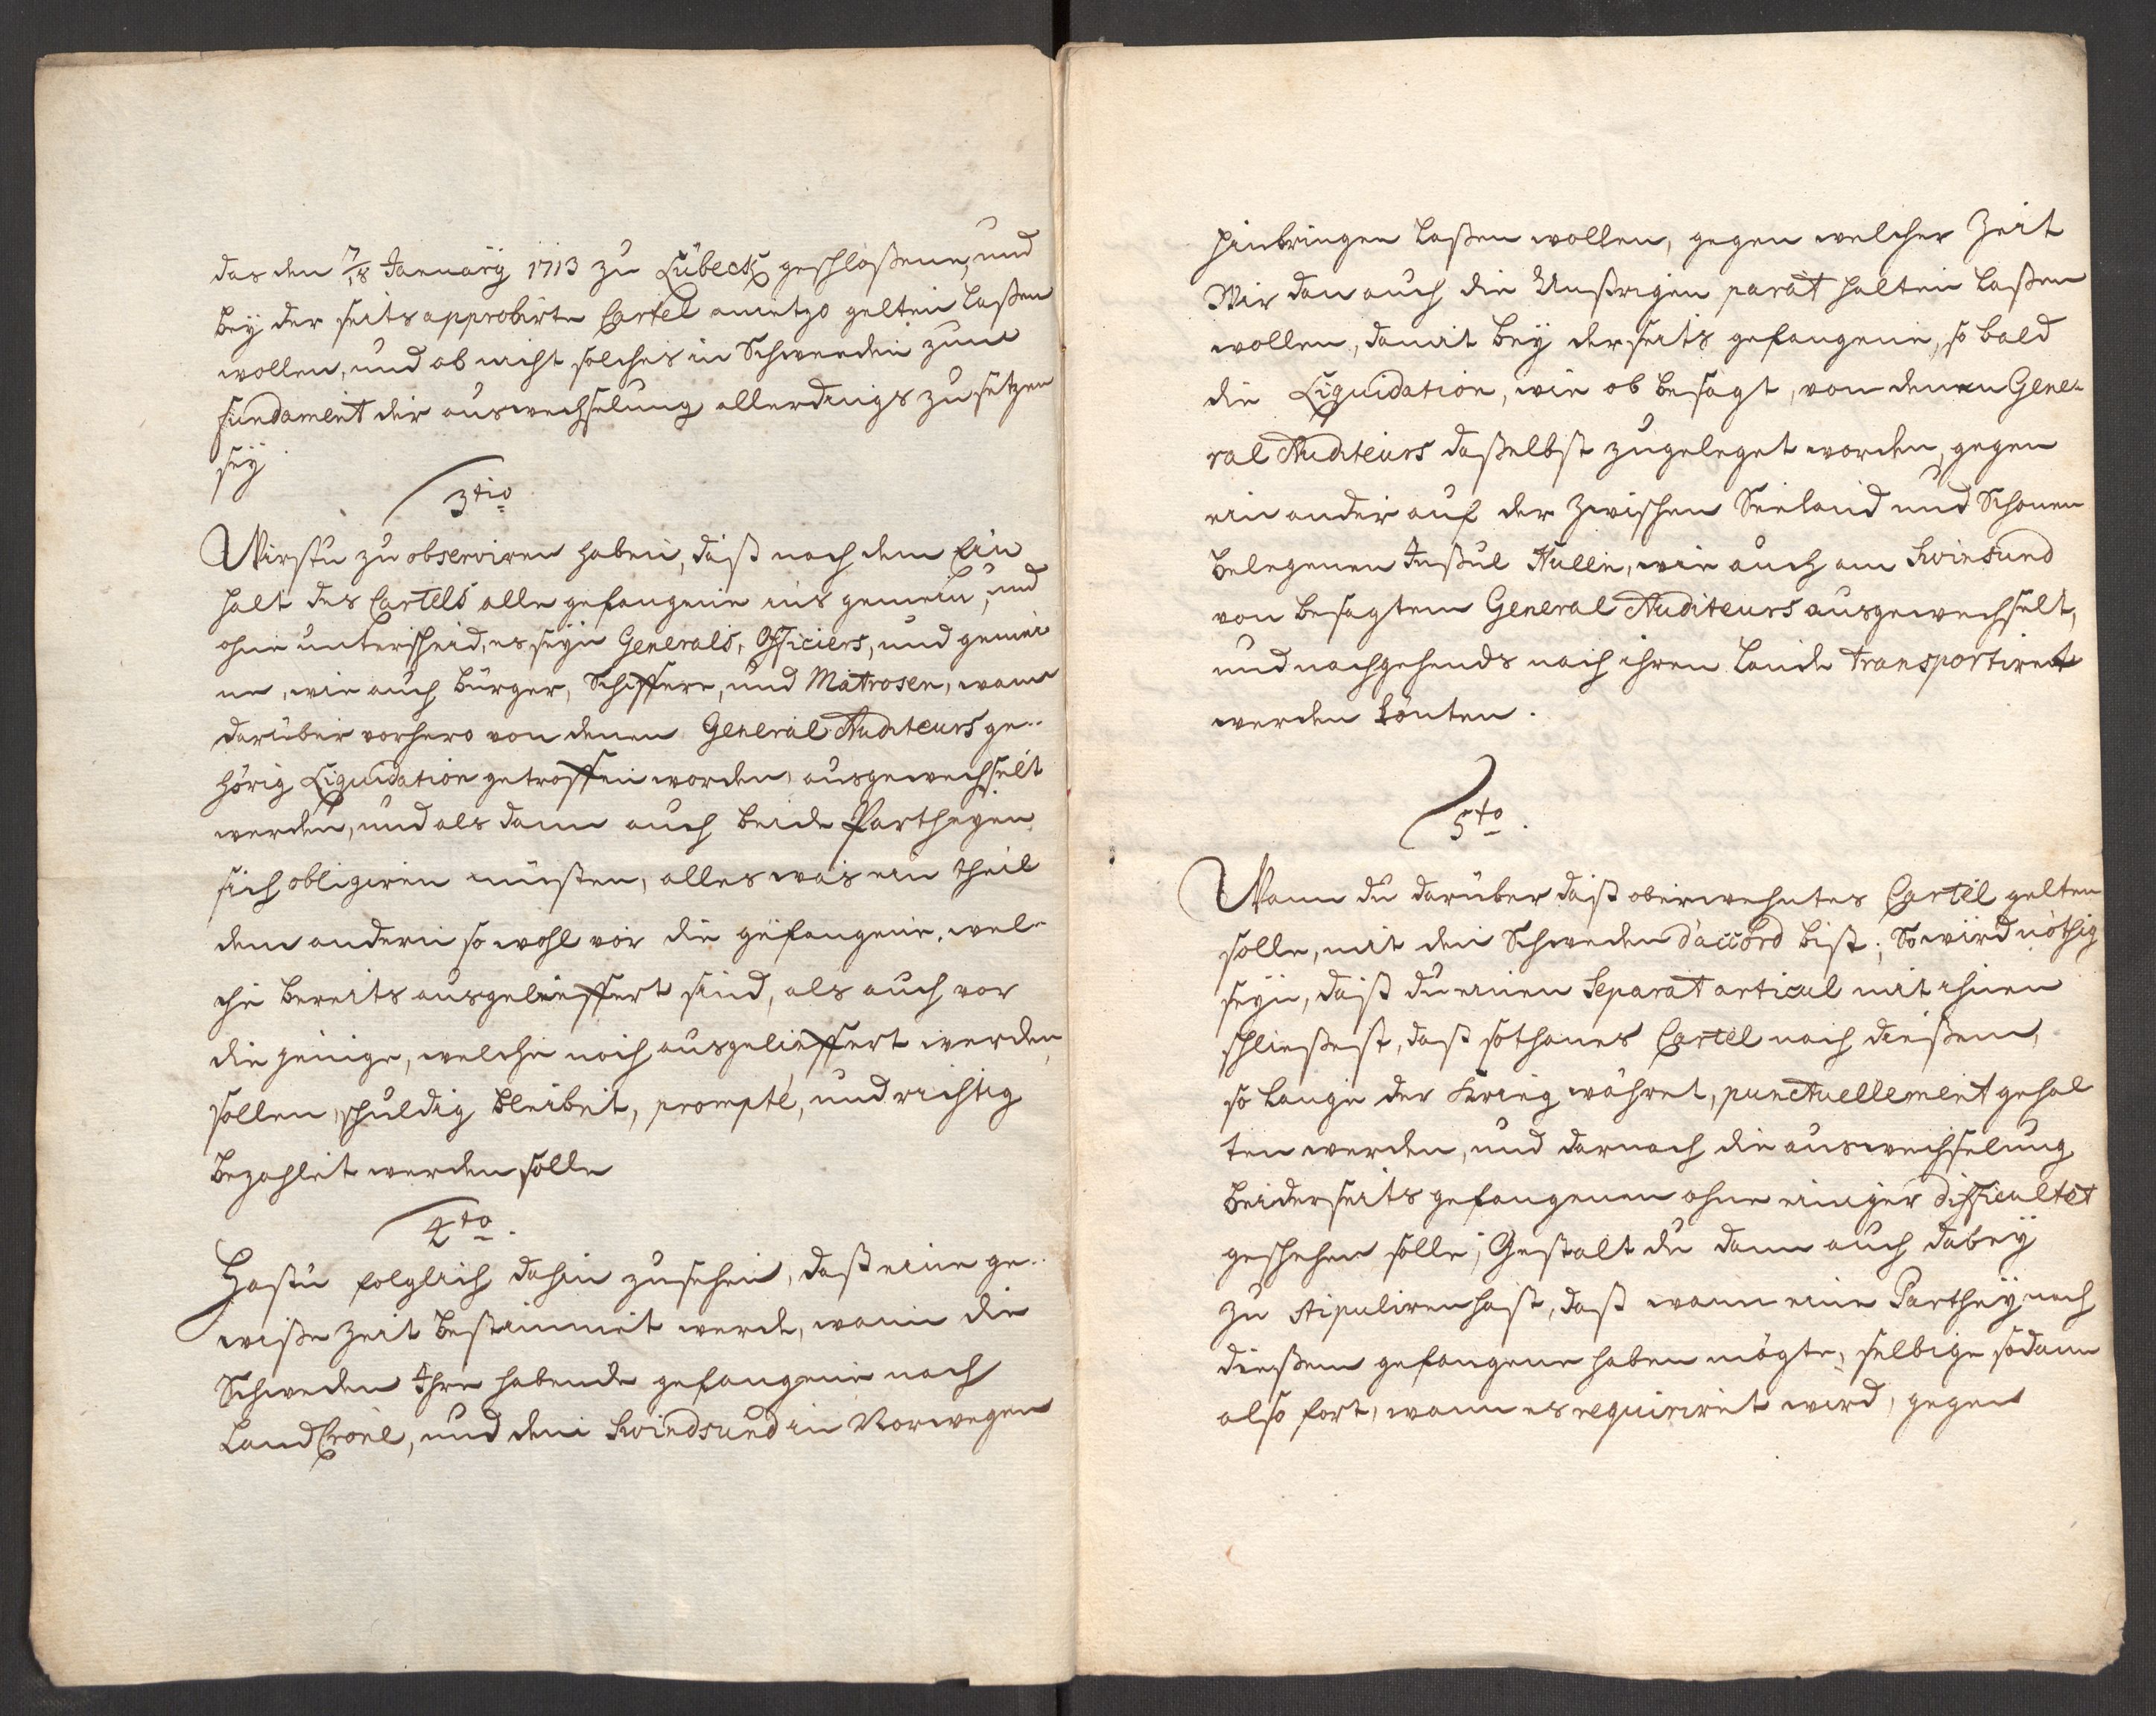 das den 7/18 January 1713 zu Lübeck geschloßene, und
bey der seits approbirte Cartel anietzo gelten laßen
wollen, und ob nicht solches in Schweden zum
fundament der auswechselung allerdings zu setzen
sey
3tio
Wirstu zu observiren haben, daß nach dem Ein
halt des Cartels alle gefangene ins gemein, und
ohne unterscheid, es seyn Generals, Officiers, und gemei
ne, wie auch Bürger, Schiffere, und Matrosen, wann
darüber vorhero von denen General Auditeurs ge-
hörig Liquidation getroffen worden, ausgewechselt
werden, und als dann auch beide Partheyen
sich obligiren müßten, alles was ein theil
dem andern so wohl vor die gefangene, wel-
che bereits ausgelieffert sind, als auch vor
die jenige, welche noch ausgelieffert werden
sollen, schuldig bleibet, prompte, und richtig
bezahlet werden solle
4to.
Hastu folglich dahin zusehen, daß eine ge-
wiße Zeit bestimmet werde, wann die
Schweden Ihre habende gefangene nach
LandCrone, und dem Swindsund in Norwegen
hinbringen laßen wollen, gegen welcher Zeit
Wir dan auch die Unßrigen parat halten laßen
wollen, damit bey derseits gefangene, so bald
die Liquidation, wie ob besagt, von denen Gene-
ral Auditeurs daßelbst zugeleget worden, gegen
ein ander auf der zwischen Seeland und Schonen
belegenen Insul Hueen, wie auch am Swinsund
von besagten General Auditeurs ausgewechselt,
und nachgehends nach ihren Lande transportiret
werden könten.
5to.
Wann du darüber daß oberwehntes Cartel gelten
solle, mit den Schweden d'accord bist; So wird nöthig
seyn, daß du einen Separat articul mit ihnen
schließest, daß sothanes Cartel nach dießem,
so lange der Krieg währet, punctuellement gehal
ten werden, und darnach die auswechselung
beiderseits gefangenen ohne einiger difficultet
geschehen solle; Gestalt du dann auch dabey
zu stipuliren hast, daß wann eine Parthey nach
dießem gefangene haben mögte, selbige sodann
also fort, wann es requiriret wird, gegen